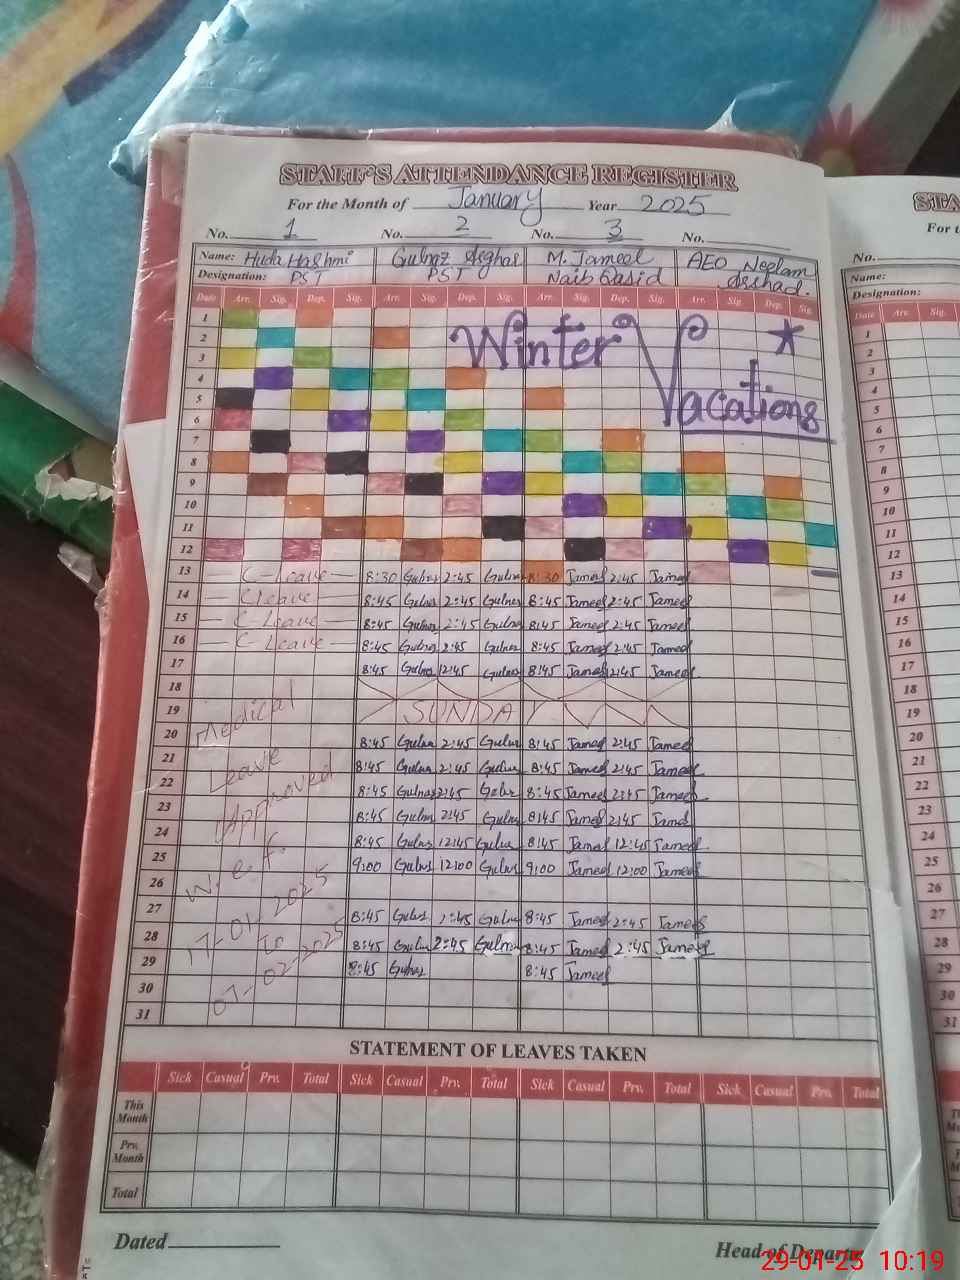 STAFF'S ATTENDANCE REGISTER
For the Month of January Year 2025
No. 1 No. 2 No. 3 No.
Name: Huda Hashmi Gulnaz Asghar M. Jameel AEO Neelam
Designation: PST PST Naib Qasid Arshad.
Date Arr. Sig. Dep. Sig. Arr. Sig. Dep. Sig. Arr. Sig. Dep. Sig. Arr. Sig. Dep. Sig.
1
2 Winter
3
4
5 Vacations
6
7
8
9
10
11
12
13 C-Leave 8:30 Gulnaz 2:45 Gulnaz 8:30 Jameel 2:45 Jameel
14 C-leave 8:45 Gulnaz 2:45 Gulnaz 8:45 Jameel 2:45 Jameel
15 C-Leave 8:45 Gulnaz 2:45 Gulnaz 8:45 Jameel 2:45 Jameel
16 C-Leave 8:45 Gulnaz 2:45 Gulnaz 8:45 Jameel 2:45 Jameel
17 8:45 Gulnaz 12:45 Gulnaz 8:45 Jameel 12:45 Jameel
18
19 Medical SUNDAY
20 8:45 Gulnaz 2:45 Gulnaz 8:45 Jameel 2:45 Jameel
21 Leave 8:45 Gulnaz 2:45 Gulnaz 8:45 Jameel 2:45 Jameel
22 Approved 8:45 Gulnaz 2:45 Gulnaz 8:45 Jameel 2:45 Jameel
23 8:45 Gulnaz 2:45 Gulnaz 8:45 Jameel 2:45 Jameel
24 w.e.f. 8:45 Gulnaz 12:45 Gulnaz 8:45 Jameel 12:45 Jameel
25 9:00 Gulnaz 12:00 Gulnaz 9:00 Jameel 12:00 Jameel
26
27 17-01-2025 8:45 Gulnaz 2:45 Gulnaz 8:45 Jameel 2:45 Jameel
28 To 8:45 Gulnaz 2:45 Gulnaz 8:45 Jameel 2:45 Jameel
29 -02-2025 8:45 Gulnaz 8:45 Jameel
30
31
STATEMENT OF LEAVES TAKEN
Sick Casual Prv. Total Sick Casual Prv. Total Sick Casual Prv. Total Sick Casual Prv. Total
This Month
Prv. Month
Total
Dated
Head of Depart
29-01-25 10:19
STA
For t
No.
Name:
Designation:
Date Arr. Sig.
1
2
3
4
5
6
7
8
9
10
11
12
13
14
15
16
17
18
19
20
21
22
23
24
25
26
27
28
29
30
31